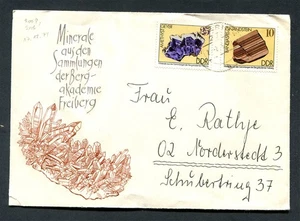 Minerale
aus den
Sammlungen
der Berg-
akademie
Freiberg
DDR
10
DDR
Frau
E. Rathje
02 Norderstedt 3
Schubertring 37